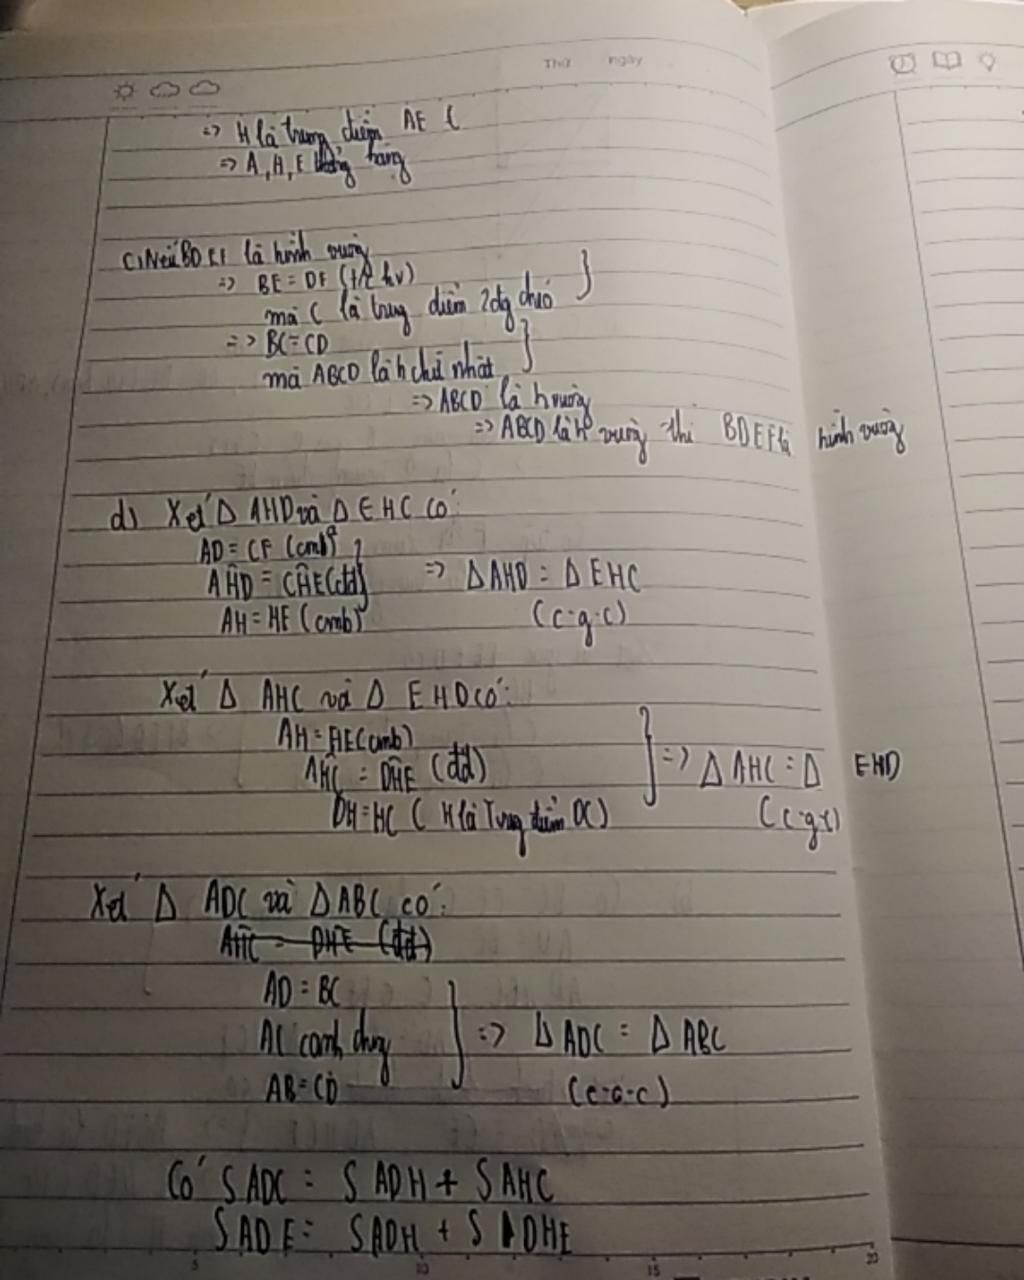 Thứ ngày
=> H là trung điểm AE
=> A, H, E thẳng hàng
c, Nếu BDEF là hình vuông
=> BE = DF (t/c hv)
mà C là trung điểm 2 đg chéo
=> BC = CD
mà ABCD là h chữ nhật
=> ABCD là h vuông
=> ABCD là h vuông thì BDEF là hình vuông
d, Xét Δ AHD và Δ EHC có:
AD = CF (cmb)
AĤD = CĤE (dd) => Δ AHD = Δ EHC
AH = HE (cmb) (c-g-c)
Xét Δ AHC và Δ EHD có:
AH = HE (cmb)
AĤC = DĤE (đđ) => Δ AHC = Δ EHD
DH = HC (H là Trung điểm DC) (c-g-c)
Xét Δ ADC và Δ ABC có:
AĤC = DĤE (đđ)
AD = BC
AC cạnh chung => Δ ADC = Δ ABC
AB = CD (c-c-c)
Có S ADC = S ADH + S AHC
S ADE = S ADH + S DHE
5 10 15 20